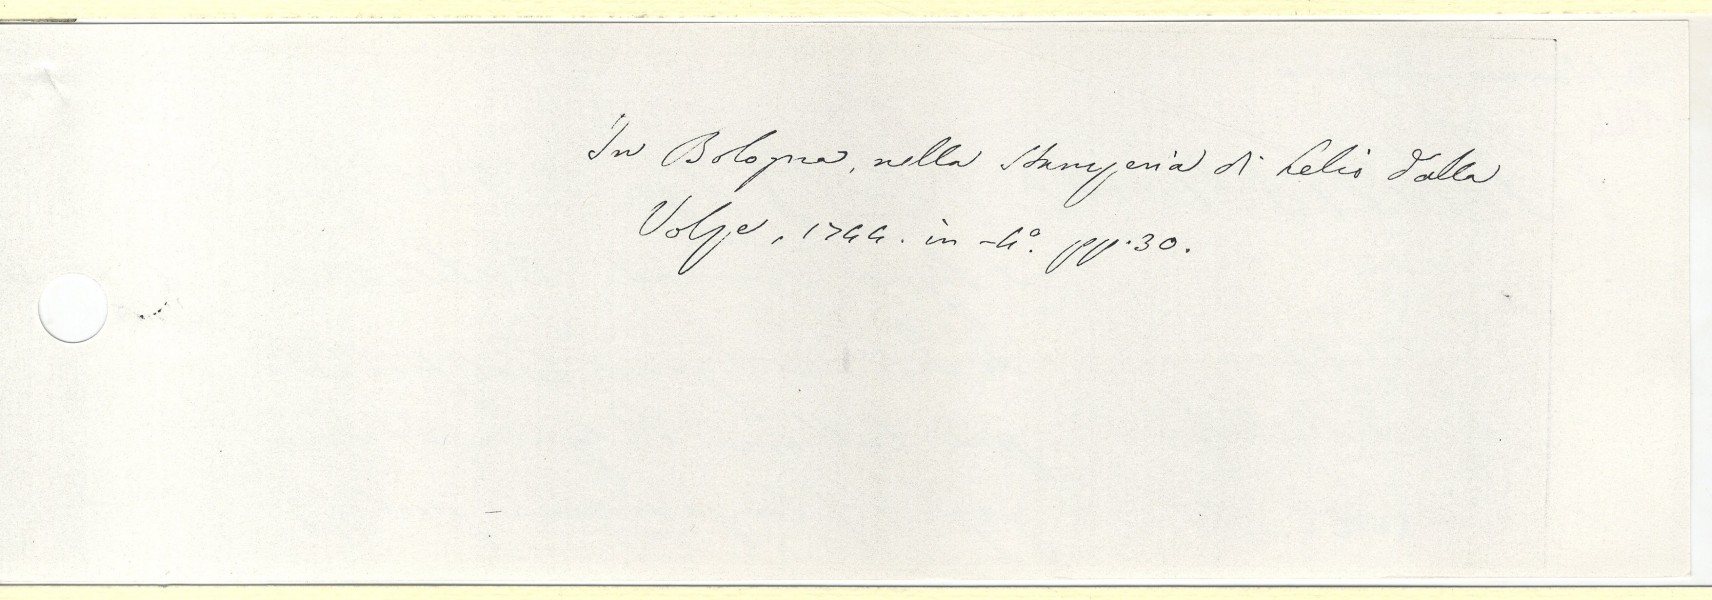 In Bologna, nella Stamperia di Lelio dalla
Volpe, 1744. in-4°. pp. 30.